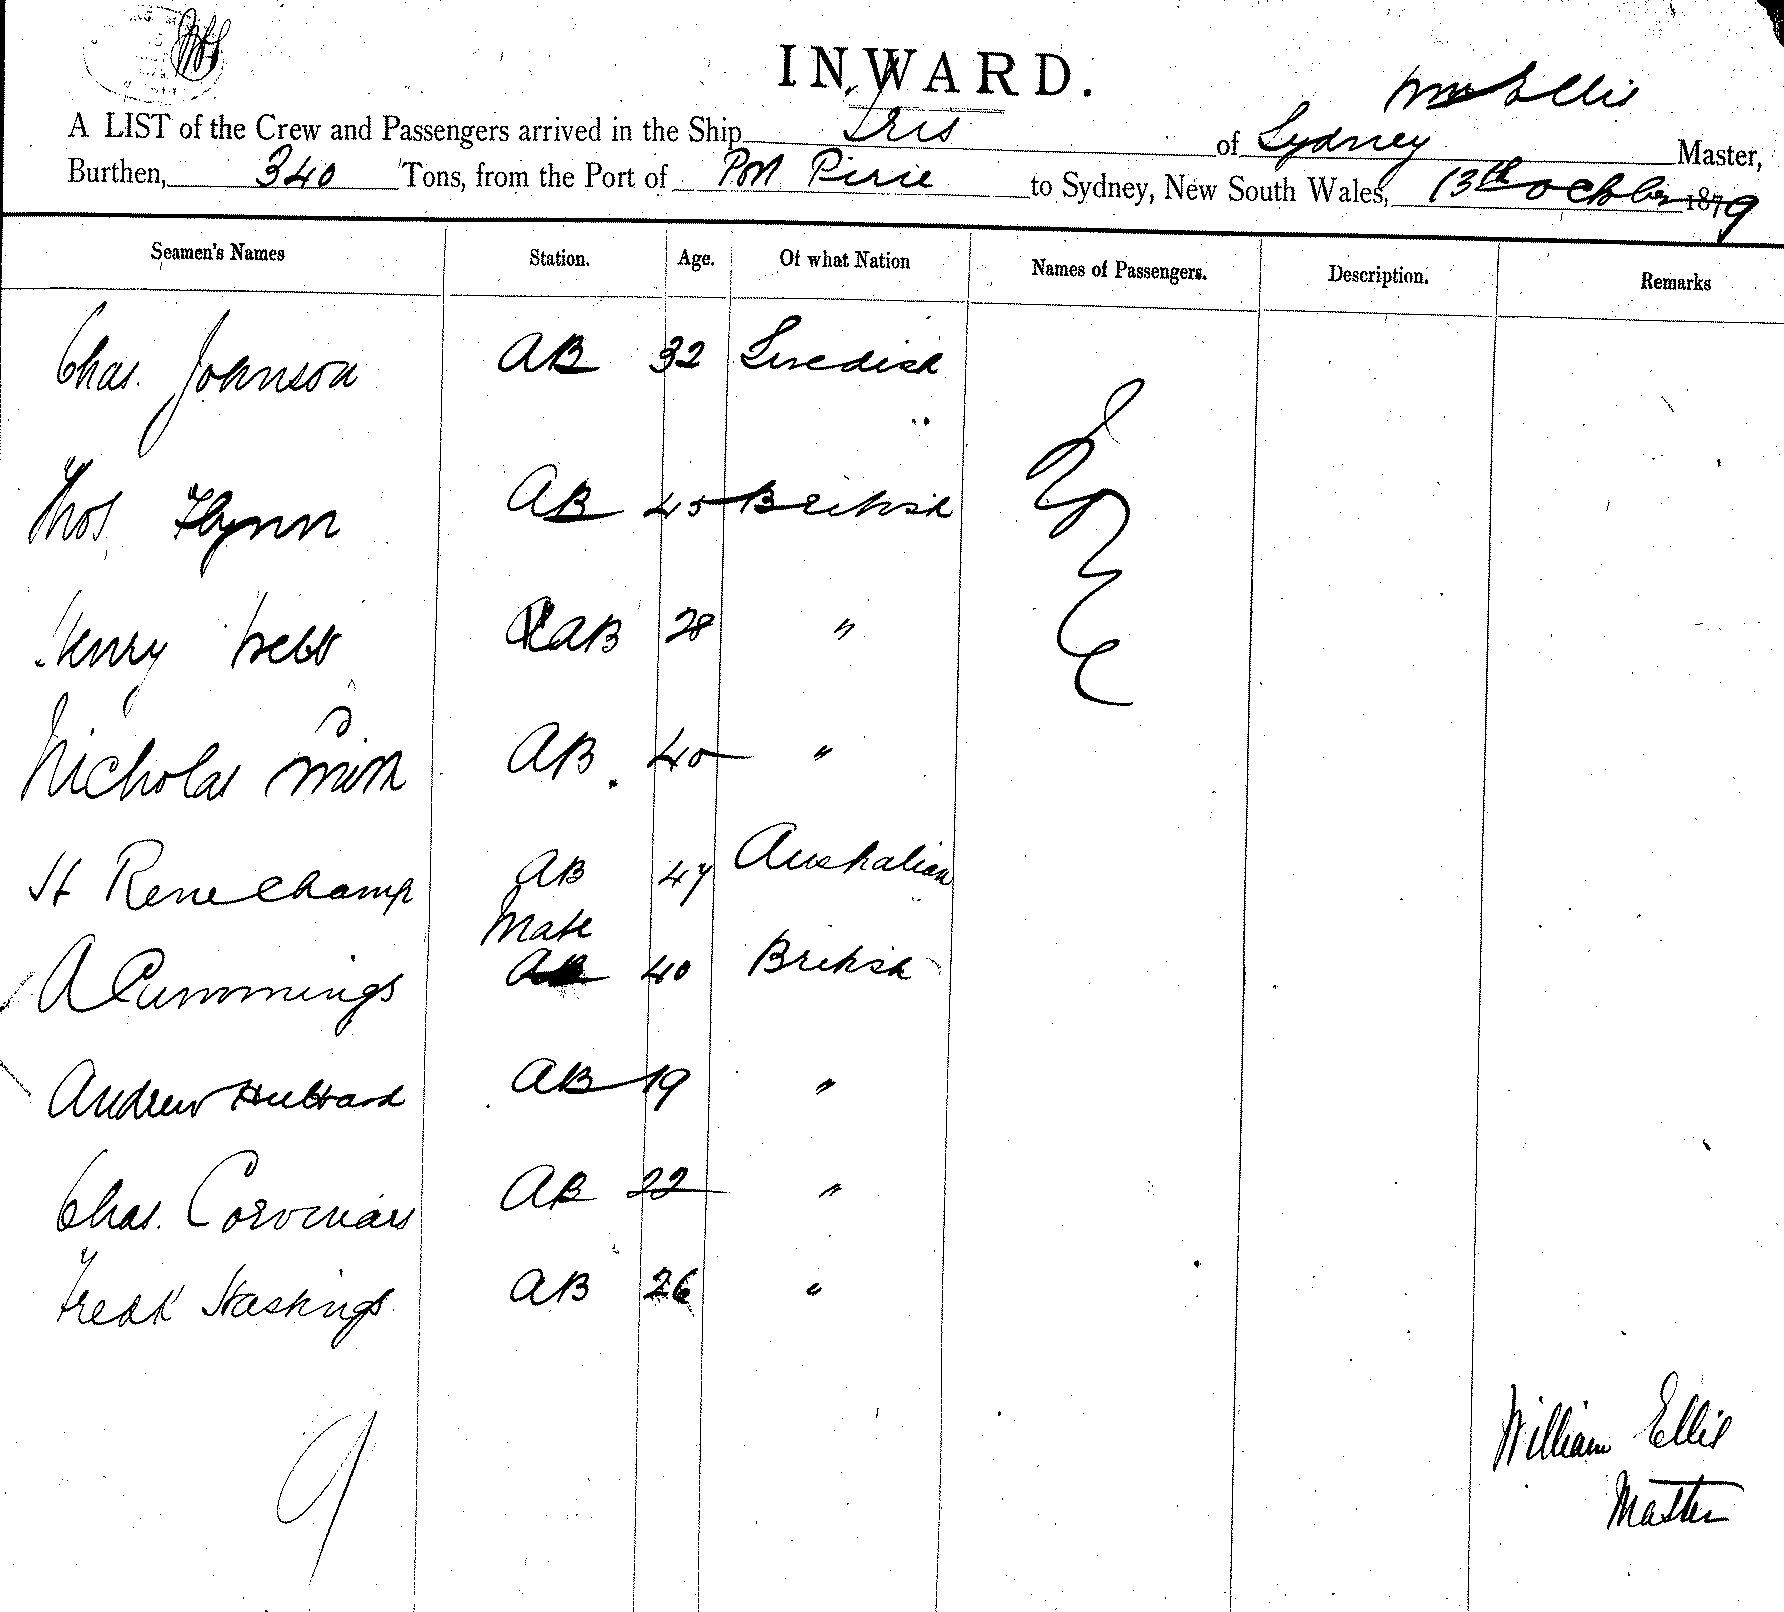 INWARD.
Wm Ellis
A LIST of the Crew and Passengers arrived in the Ship Iris of Sydney Master,
Burthen, 340 Tons, from the Port of Port Pirie to Sydney, New South Wales, 13th October 1879
Seamen's Names Station. Age. Of what Nation Names of Passengers. Description. Remarks
Chas. Johnson AB 32 Swedish
Thos Flynn AB 45 British
Henry Webb AB 28 "
Nicholas Smith AB 40 "
St Rene Champ AB 47 Australian
Mate
A Cummings AB 40 British
Andrew Hubbard AB 19 "
Chas. AB 22 "
Fredk Hastings AB 26 "
9
William Ellis
Master